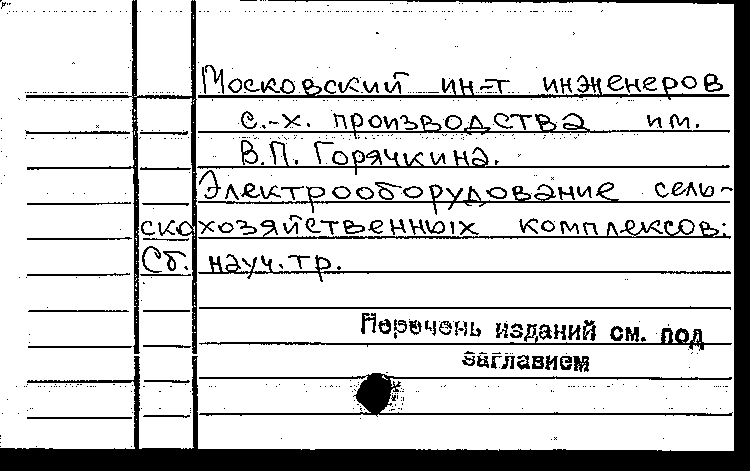 Московский ин-т инженеров
с.-х. производства им.
В.П. Горячкина.
Электрооборудование сель-
скохозяйственных комплексов:
Сб. науч. тр.
Перечень изданий см. под
заглавием